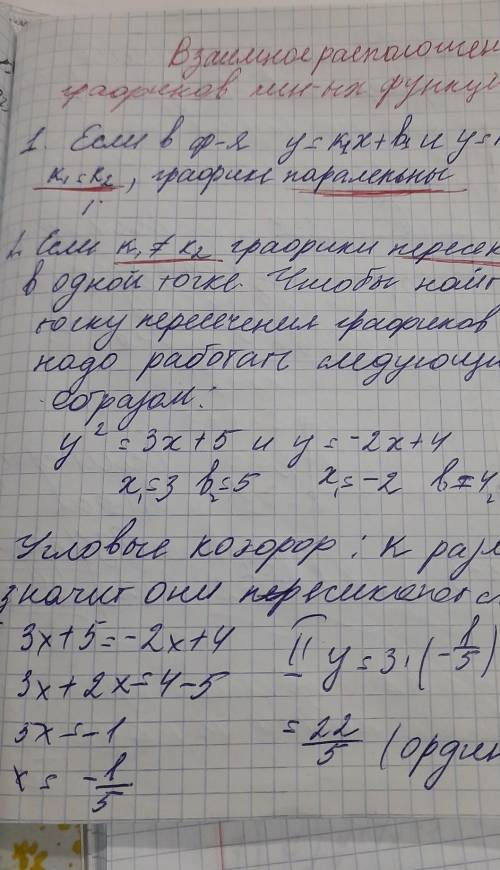 Взаимное расположен
графиков лин-ых функци
1. Если в ф-я y=k₁x+b₁ и y=
k₁=k₂, графики паралельны
2. Если k₁≠k₂ графики пересек
в одной точке. Чтобы найт
точку пересечения графиков
надо работат следующи
образом:
y²=3x+5 и y=-2x+4
x₁=3 b₂=5 x₁=-2 b=4₂
Угловые : к раз
значит они пересикают с
3x+5=-2x+4
3x+2x=4-5
5x=-1
x=-1/5
II y=3·(-1/5)
=22/5 (ордин